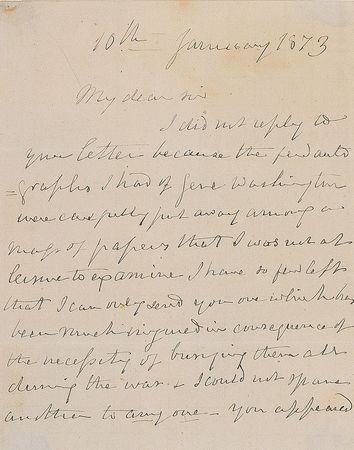 10th January 1873
My dear sir
I did not reply to
your letter because the few auto
=graphs I had of Genl Washington
were carefully put away among a
mass of papers that I was not at
leisure to examine I have so few left
that I can only send you one which has
been much injured in consequence of
the necessity of burying them all
during the war & I could not spare
another to any one - You appeared